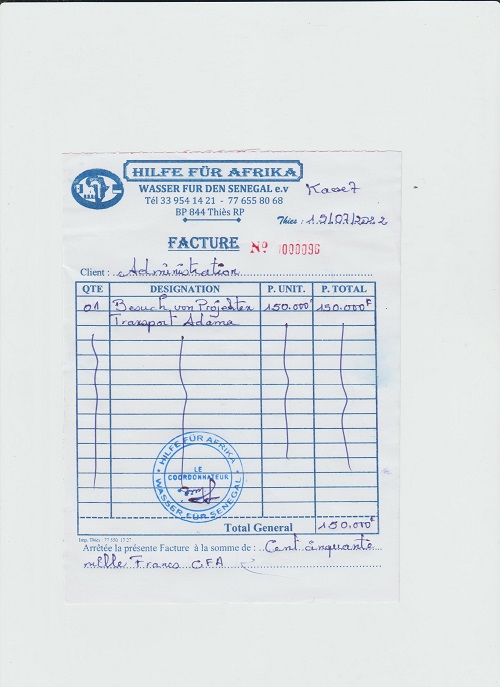 HILFE FÜR AFRIKA
WASSER FUR DEN SENEGAL e.v
Tél 33 954 14 21 - 77 655 80 68
BP 844 Thiès RP
Thies : 19/07/2022
FACTURE Nº 000096
Client : Administration
QTE DESIGNATION P. UNIT. P. TOTAL
01 Besuch von Projekten 150.000F 150.000F
Transport Adama
HILFE FÜR AFRIKA
LE
COORDONNATEUR
WASSER FÜR SENEGAL
Total General 150.000F
Imp. Thies : 77 550 17 27
Arrêtée la présente Facture à la somme de : Cent cinquante
mille Francs CFA